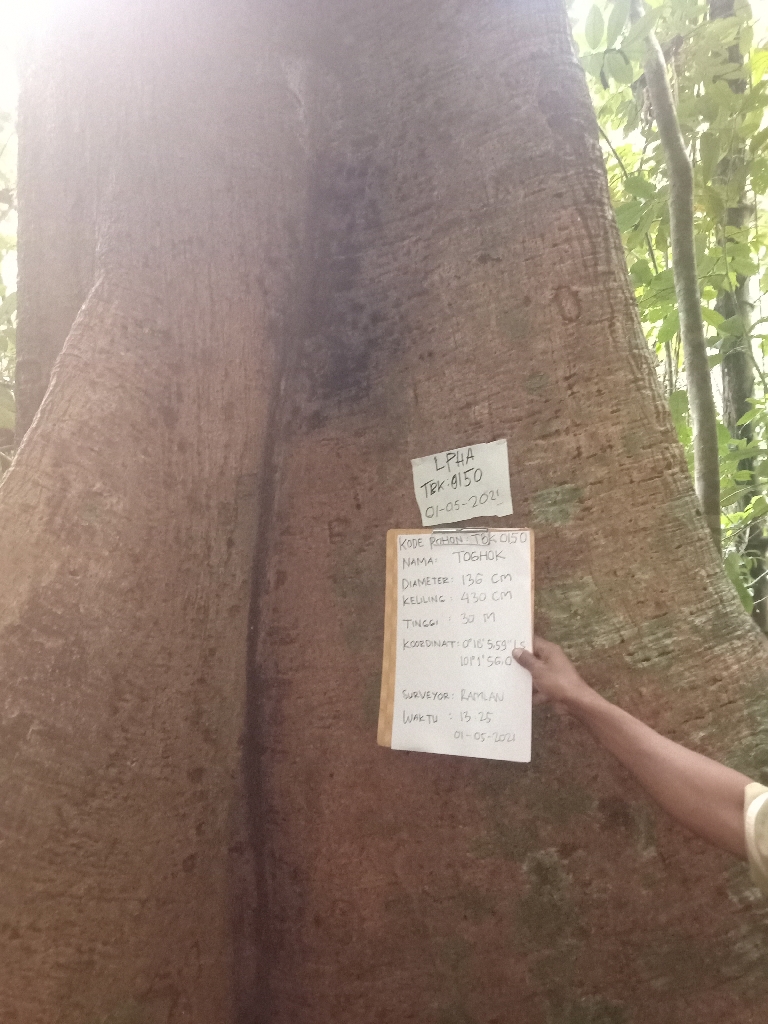 LPHA
TBK:0150
01-05-2021
KODE POHON: TBK 0150
NAMA: TOGHOK
DIAMETER: 136 CM
KELILING: 430 CM
TINGGI : 30 M
KOORDINAT: 0°18'5,59" LS
101°1'56,0
SURVEYOR: RAMLAN
WAKTU : 13.25
01-05-2021